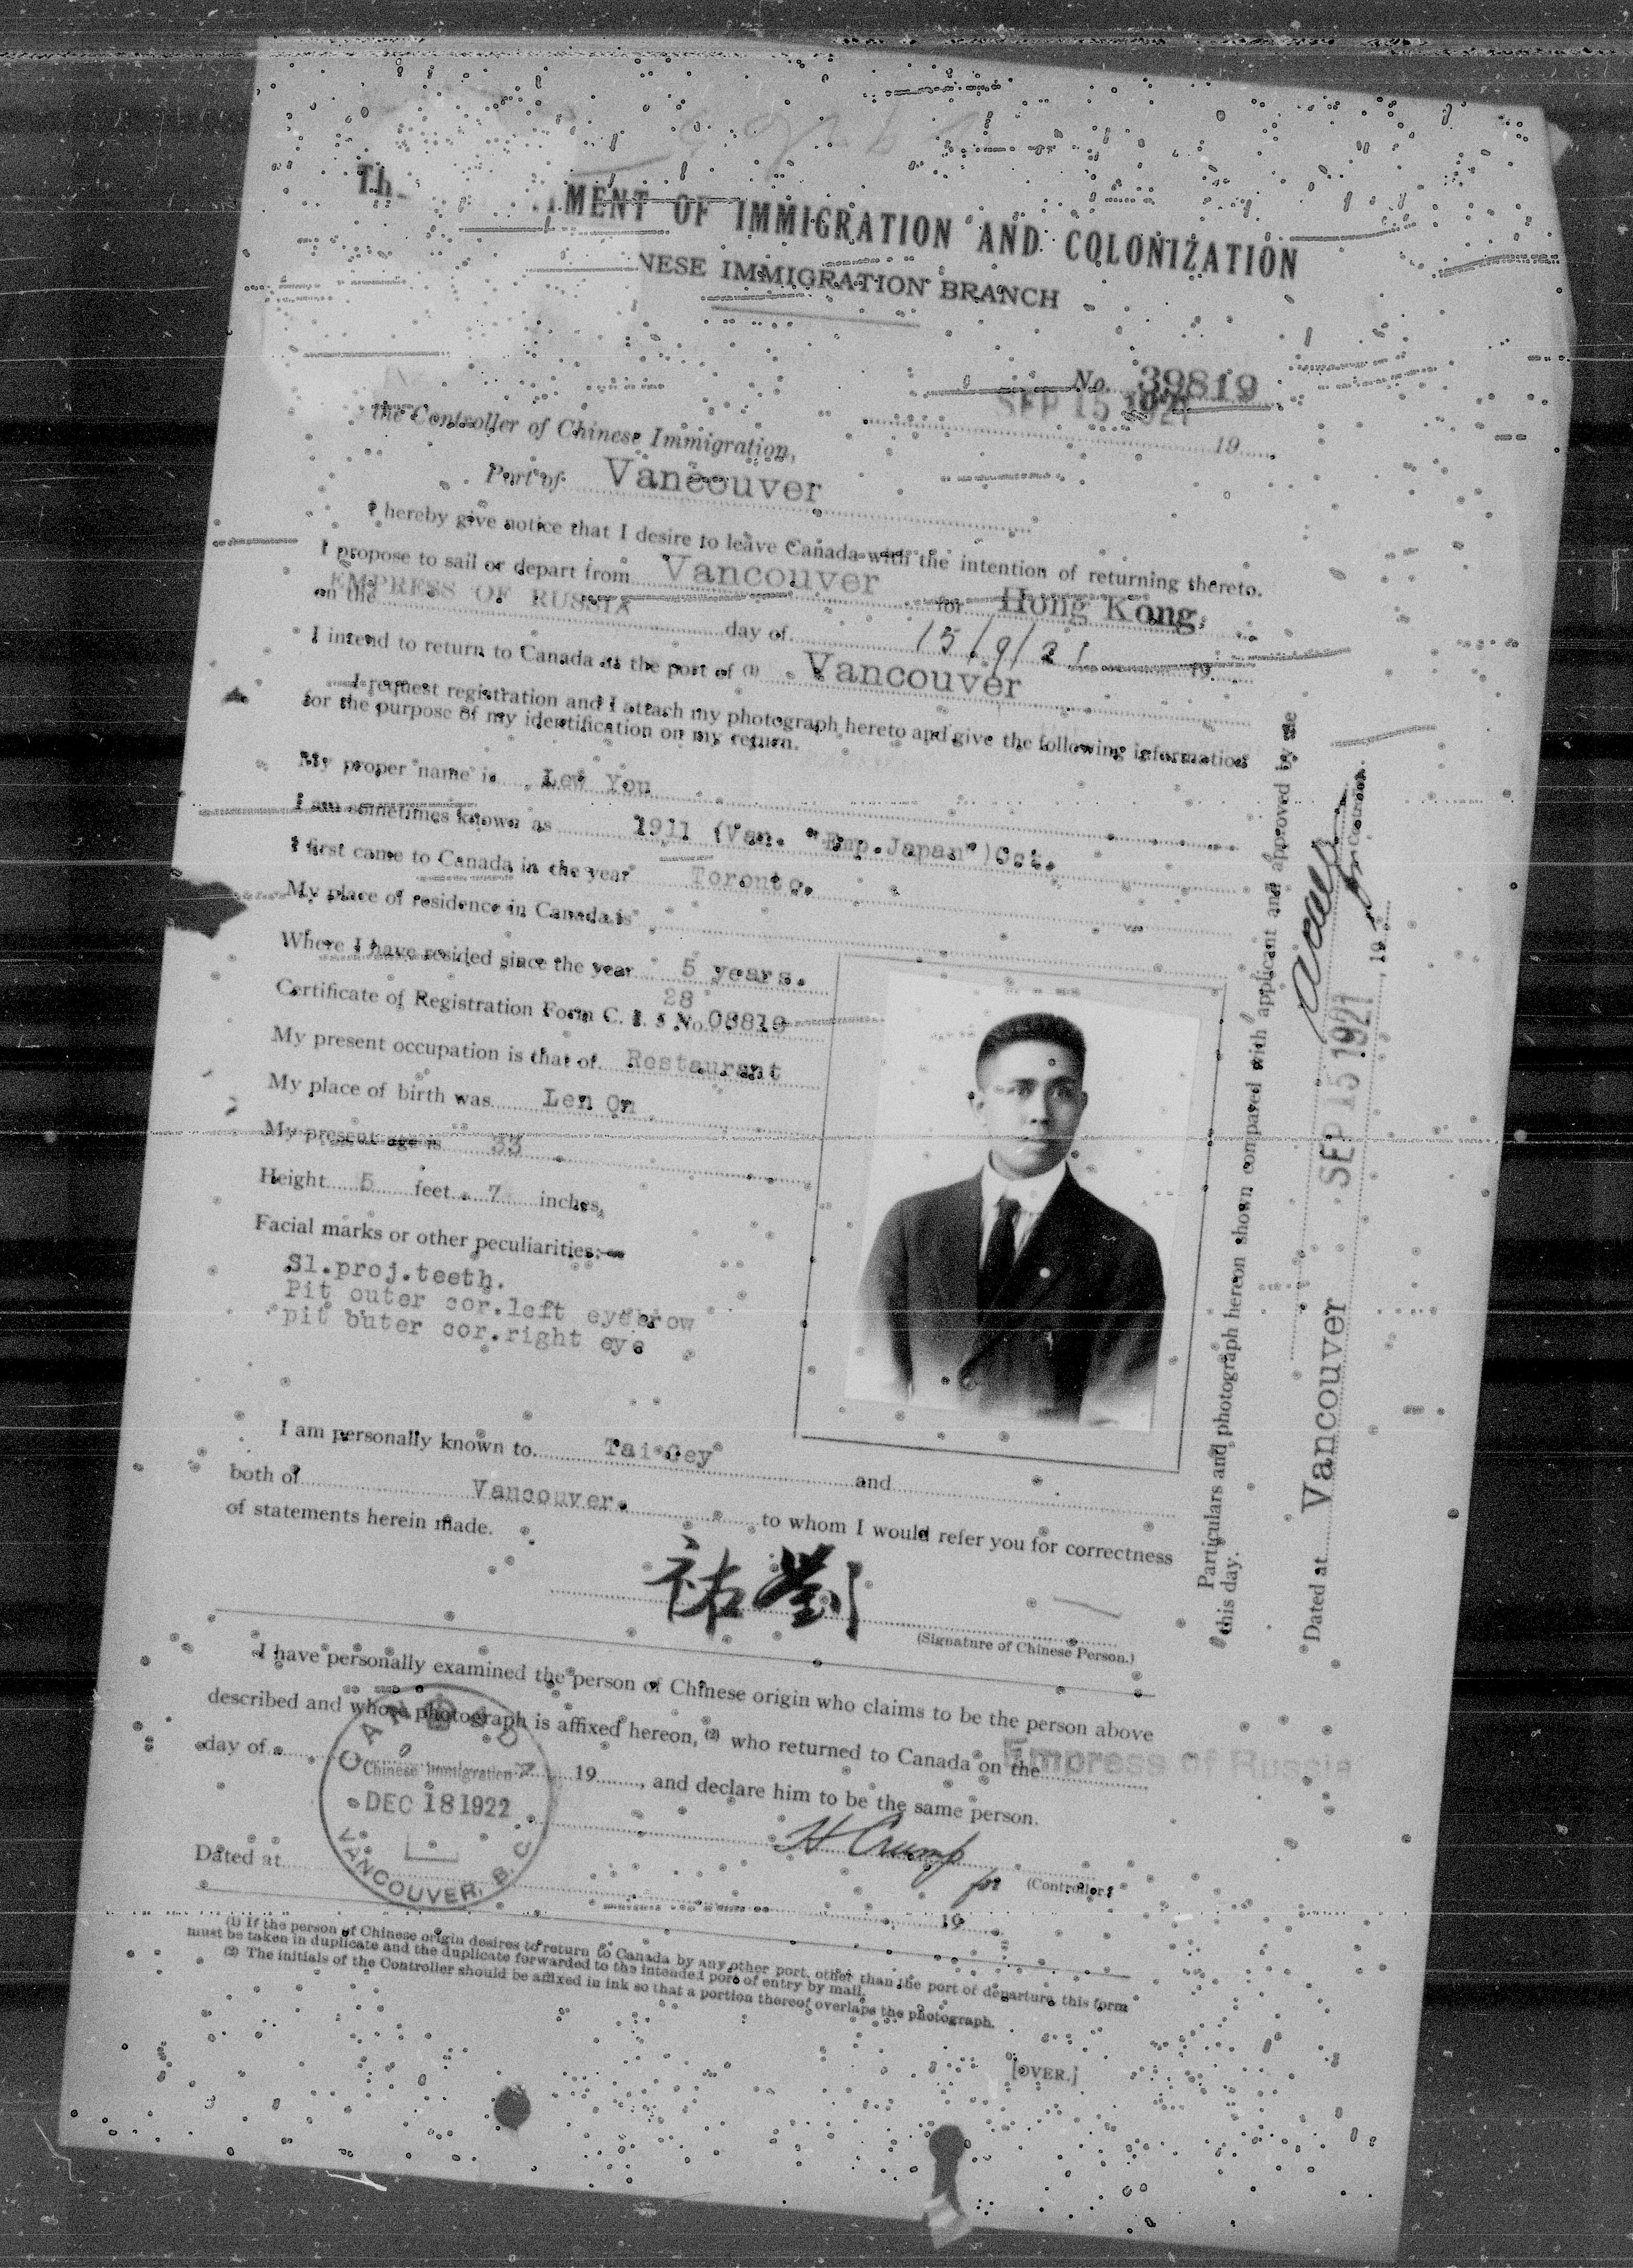 MENT OF IMMIGRATION AND COLONIZATION
NESE IMMIGRATION BRANCH
No. 39819
SEP 15 1921 19
the Controller of Chinese Immigration,
Port of Vancouver
I hereby give notice that I desire to leave Canada with the intention of returning thereto.
I propose to sail or depart from Vancouver for Hong Kong.
on the EMPRESS OF RUSSIA day of 15/9/21 19
I intend to return to Canada at the port of (1) Vancouver
I request registration and I attach my photograph hereto and give the following information
for the purpose of my identification on my return.
My proper name is Lew You
I am sometimes known as
I first came to Canada in the year 1911 (Van. "Emp.Japan")Oct.
My place of residence in Canada is Toronto.
Where I have resided since the year 5 years.
Certificate of Registration Form C. I. 5 No. 08810
28
My present occupation is that of Restaurant
My place of birth was Len On
My present age is 33
Height 5 feet 7 inches,
Facial marks or other peculiarities:—
Sl.proj.teeth.
Pit outer cor.left eyebrow
pit outer cor.right eye
I am personally known to Tai Gey and
both of Vancouver. to whom I would refer you for correctness
of statements herein made.
祐劉
(Signature of Chinese Person.)
I have personally examined the person of Chinese origin who claims to be the person above
described and whose photograph is affixed hereon, (2) who returned to Canada on the Empress of Russia
day of 19, and declare him to be the same person.
H Crump
for (Controller)
Dated at 19
CANADA
Chinese Immigration
DEC 18 1922
VANCOUVER, B. C.
(1) If the person of Chinese origin desires to return to Canada by any other port, other than the port of departure this form
must be taken in duplicate and the duplicate forwarded to the intended port of entry by mail.
(2) The initials of the Controller should be affixed in ink so that a portion thereof overlaps the photograph.
[OVER.]
Particulars and photograph hereon shown compared with applicant and approved by me
this day.
Dated at Vancouver SEP 15 1921, 19
Controller.